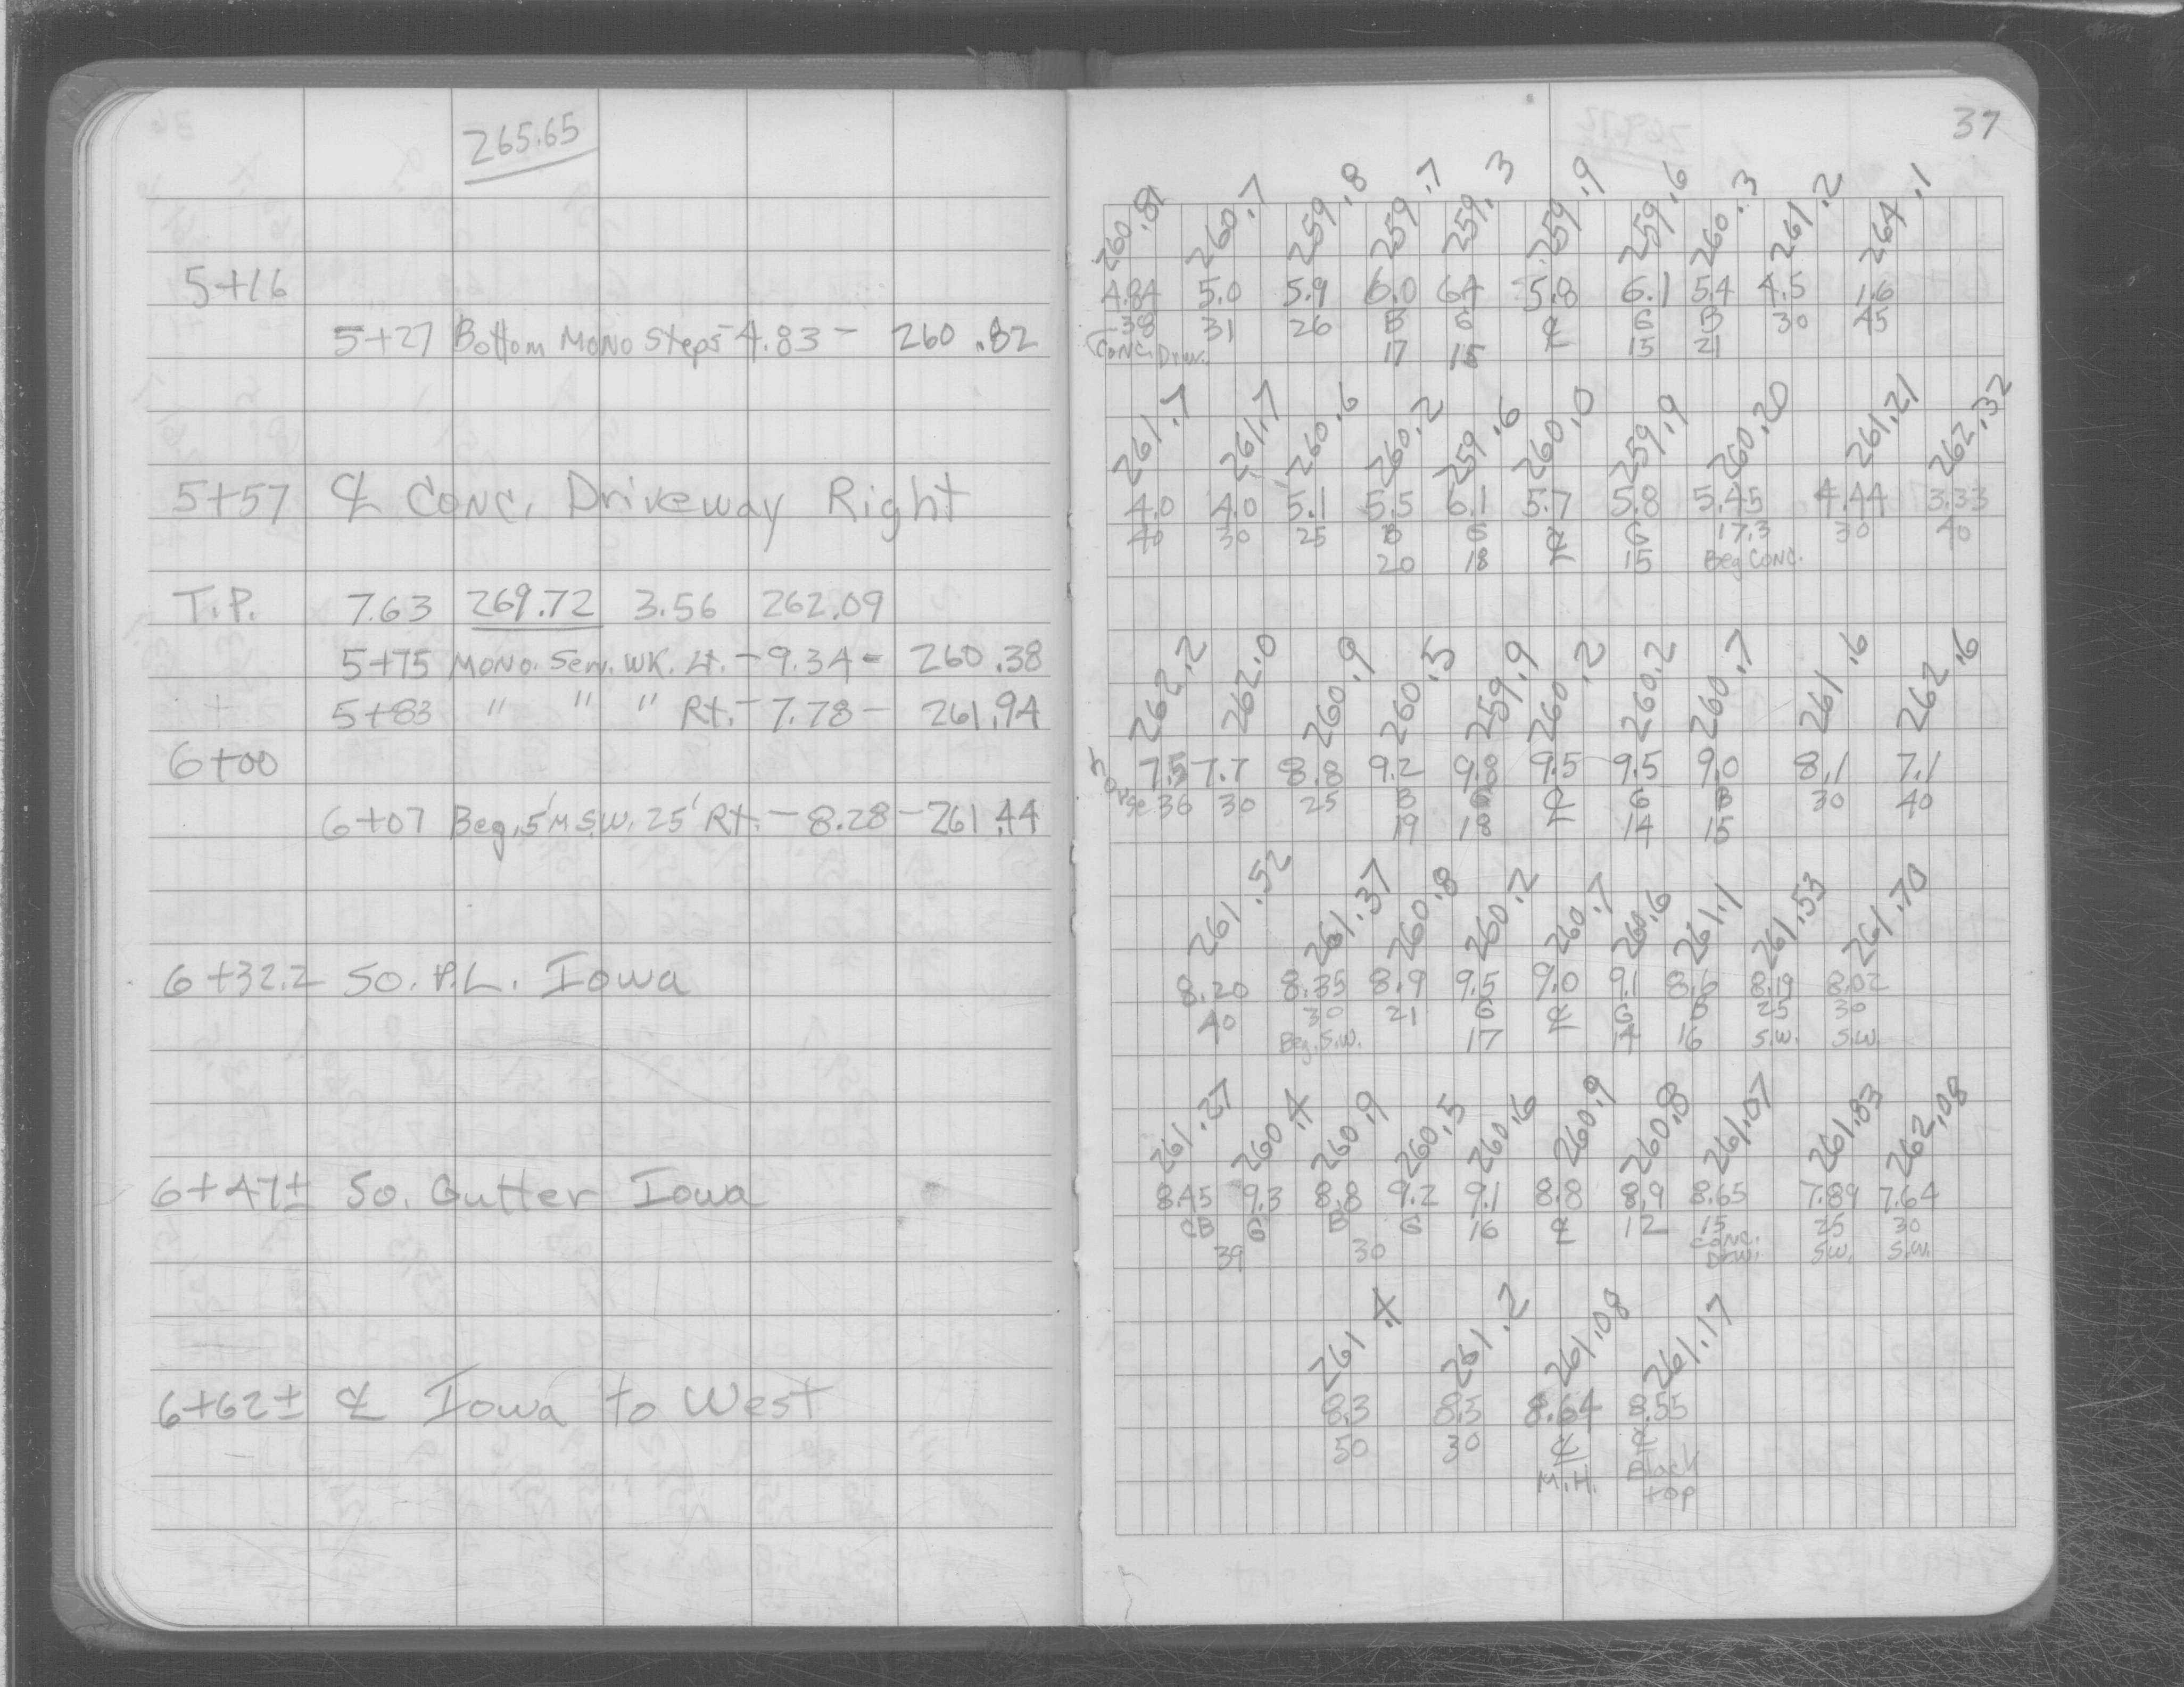 265.65
5+16
5+27 Bottom Mono Steps - 4.83 - 260.82
5+57 ℄ Conc. Driveway Right
T.P. 7.63 269.72 3.56 262.09
5+75 Mono. Serv. WK. Lt. - 9.34 - 260.38
5+83 " " " Rt. - 7.78 - 261.94
6+00
6+07 Beg. 5' M S.W. 25' Rt. - 8.28 - 261.44
6+32.2 So. P.L. Iowa
6+47± So. Gutter Iowa
6+62± ℄ Iowa to West
37
260.81 260.7 259.8 259.7 259.3 259.9 259.6 260.3 261.2 264.1
4.84 5.0 5.9 6.0 6.4 5.8 6.1 5.4 4.5 1.6
38 31 26 B G ℄ G B 30 45
Conc. Driv. 17 15 15 21
261.7 261.7 260.6 260.2 259.6 260.0 259.9 260.20 261.21 262.32
4.0 4.0 5.1 5.5 6.1 5.7 5.8 5.45 4.44 3.33
40 30 25 B G ℄ G 17.3 30 40
20 18 15 Beg Conc.
262.2 262.0 260.9 260.5 259.9 260.2 260.2 260.7 261.6 262.6
7.5 7.7 8.8 9.2 9.8 9.5 9.5 9.0 8.1 7.1
36 30 25 B G ℄ G B 30 40
19 18 14 15
261.52 261.37 260.8 260.2 260.7 260.6 261.1 261.53 261.70
8.20 8.35 8.9 9.5 9.0 9.1 8.6 8.19 8.02
40 30 21 G ℄ G B 25 30
Beg. S.W. 17 14 16 S.W. S.W.
261.27 260.4 260.9 260.5 260.6 260.9 260.8 261.07 261.83 262.08
8.45 9.3 8.8 9.2 9.1 8.8 8.9 8.65 7.89 7.64
CB G B G 16 ℄ 12 15 25 30
39 30 Conc. Drw. S.W. S.W.
261.4 261.2 261.08 261.17
8.3 8.5 8.64 8.55
50 30 ℄ ℄
M.H. Black
top